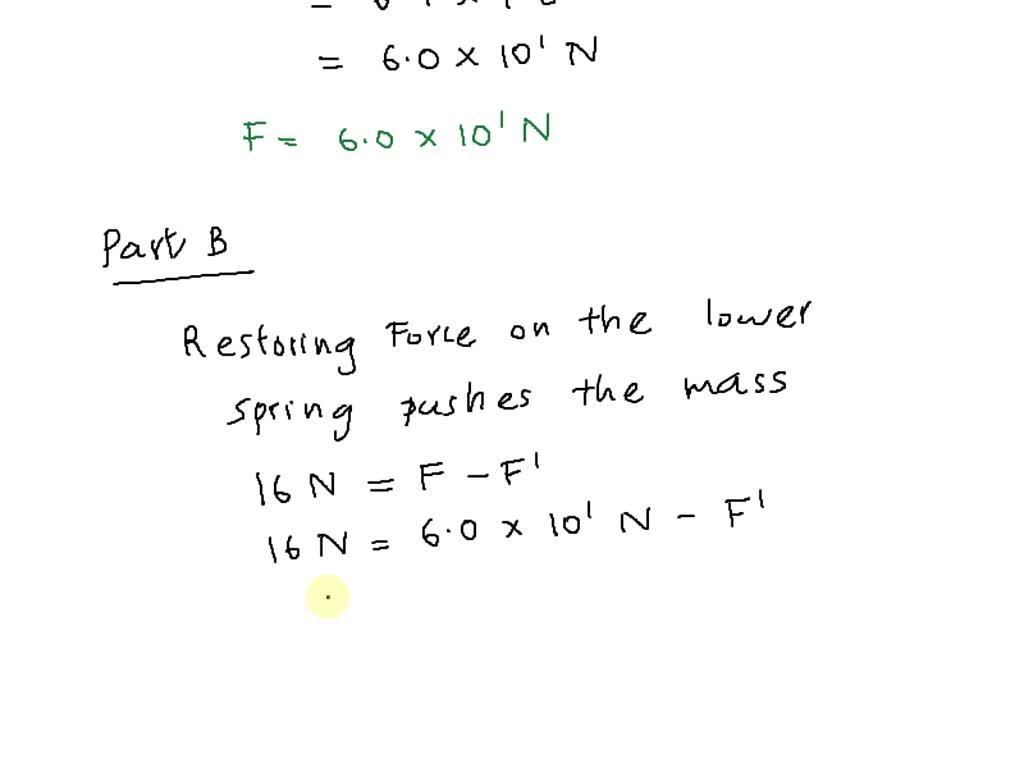 = 6.0 × 10¹ N
F = 6.0 × 10¹ N
Part B
Restoring Force on the lower
spring pushes the mass
16 N = F - F'
16 N = 6.0 × 10¹ N - F'